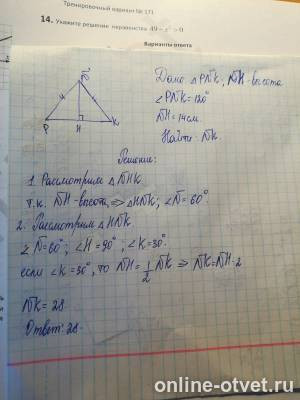 Тренировочный вариант № 171
14. Укажите решение неравенства 49 - x² > 0
Варианты ответа
Дано: △PNK, NH - высота
∠PNK = 120°
NH = 14 см.
Найти: NK.
N
P
H
K
Решение:
1. Рассмотрим △NHK
т.к. NH - высота, ⇒ △HNK; ∠N = 60°.
2. Рассмотрим △HNK
∠N = 60°; ∠H = 90°; ∠K = 30°.
если ∠K = 30°, то NH = 1/2 NK ⇒ NK = NH · 2
NK = 28
Ответ: 28.
online-otvet.ru